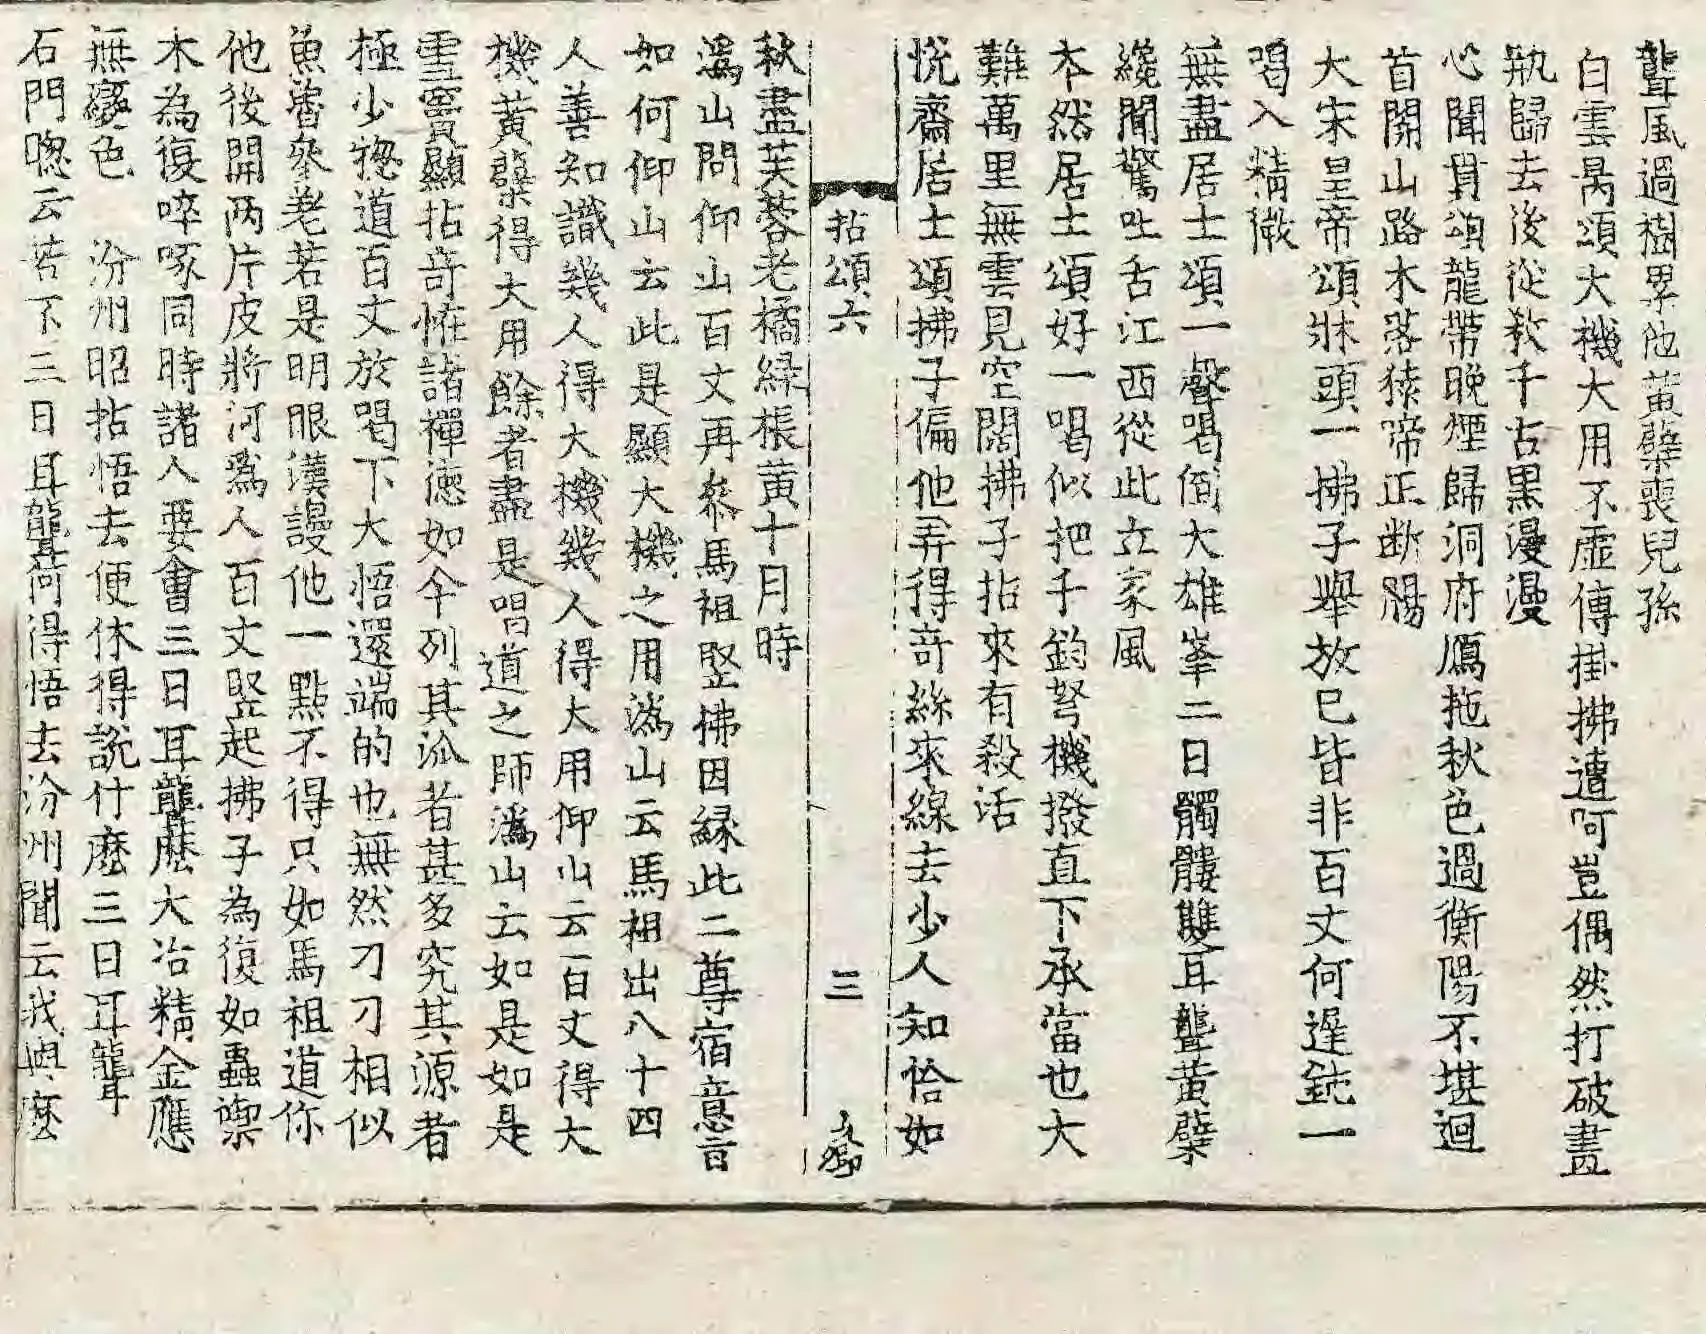 聾風過樹累他黃蘗喪兒孫
白雲昺頌大機大用不虛傳掛拂遭呵豈偶然打破畫
甁歸去後從敎千古黑漫漫
心聞賁頌龍帶晚煙歸洞府鴈拖秋色過衡陽不堪迴
首開山路木落猿啼正斷膓
大宋皇帝頌牀頭一拂子擧放已皆非百丈何遲鈍一
喝入精微
無盡居士頌一聲喝倒大雄峯三日髑髏雙耳聾黃蘗
纔聞驚吐舌江西從此立家風
本然居士頌好一喝似把千鈞弩機撥直下承當也大
難萬里無雲見空闊拂子拈來有殺活
悅齋居士頌拂子偏他弄得奇絲來線去少人知恰如
拈頌六　三
秋盡芙蓉老橘緑棖黃十月時
潙山問仰山百丈再叅馬祖竪拂因緣此二尊宿意旨
如何仰山云此是顯大機之用潙山云馬祖出八十四
人善知識幾人得大機幾人得大用仰山云百丈得大
機黃蘗得大用餘者盡是唱道之師潙山云如是如是
雪竇顯拈奇恠諸禪德如今列其派者甚多究其源者
極少揔道百丈於喝下大悟還端的也無然刁刀相似
魚魯叅差若是明眼漢謾他一點不得只如馬祖道你
他後開两片皮將何爲人百丈竪起拂子為復如蟲禦
木為復啐啄同時諸人要會三日耳聾麽大冶精金應
無變色　汾州昭拈悟去便休得說什麽三日耳聾
石門聦云若不三日耳聾何得悟去汾州聞云我與麽